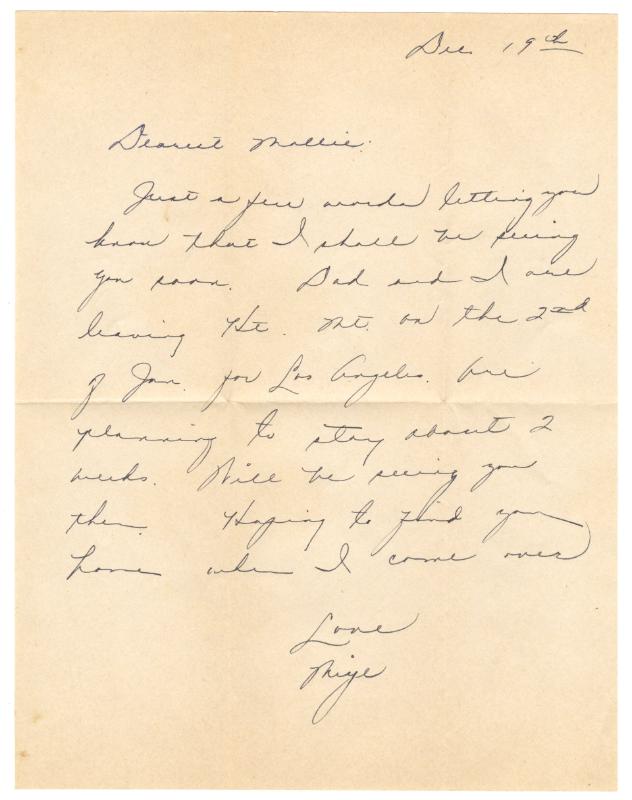 Dec 19th
Dearest Mollie:
Just a few words letting you
know that I shall be seeing
you soon. Dad and I are
leaving Ht. Mt. on the 2nd
of Jan. for Los Angeles. Are
planning to stay about 2
weeks. Will be seeing you
then. Hoping to find you
home when I come over
Love
Mige